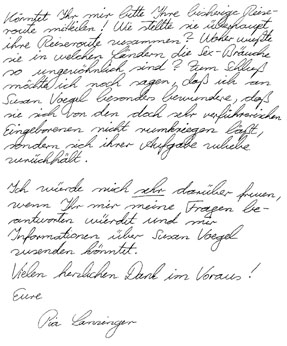 Könntet Ihr mir bitte Ihre bisherige Reise-
route mitteilen! Wie stellte sie überhaupt
ihre Reiseroute zusammen? Woher wußte
sie in welchen Ländern die Sex-Bräuche
so ungewöhnlich sind? Zum Schluß
möchte ich noch sagen, daß ich an
Susan Voegel besonders bewundere, daß
sie sich von den doch sehr verführerischen
Eingeborenen nicht rumkriegen läßt,
sondern sich ihrer Aufgabe zuliebe
zurückhält.
Ich würde mich sehr darüber freuen,
wenn Ihr mir meine Fragen be-
antworten würdet und mir
Informationen über Susan Voegel
zusenden könntet.
Vielen herzlichen Dank im Voraus!
Eure
Pia Lanzinger